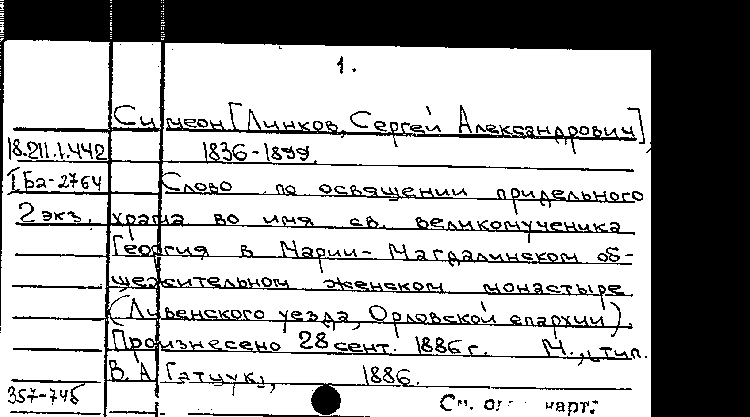 1.
Симеон [Линков, Сергей Александрович],
18.211.1.442 1836-1899.
I Ба-2764 Слово по освящении придельного
2 экз. храма во имя св. великомученика
Георгия в Марии-Магдалинском об-
щежительном женском монастыре
(Ливенского уезда, Орловской епархии).
Произнесено 28 сент. 1886 г. М., тип.
В. А. Гатцук, 1886.
357-745 См. карт.